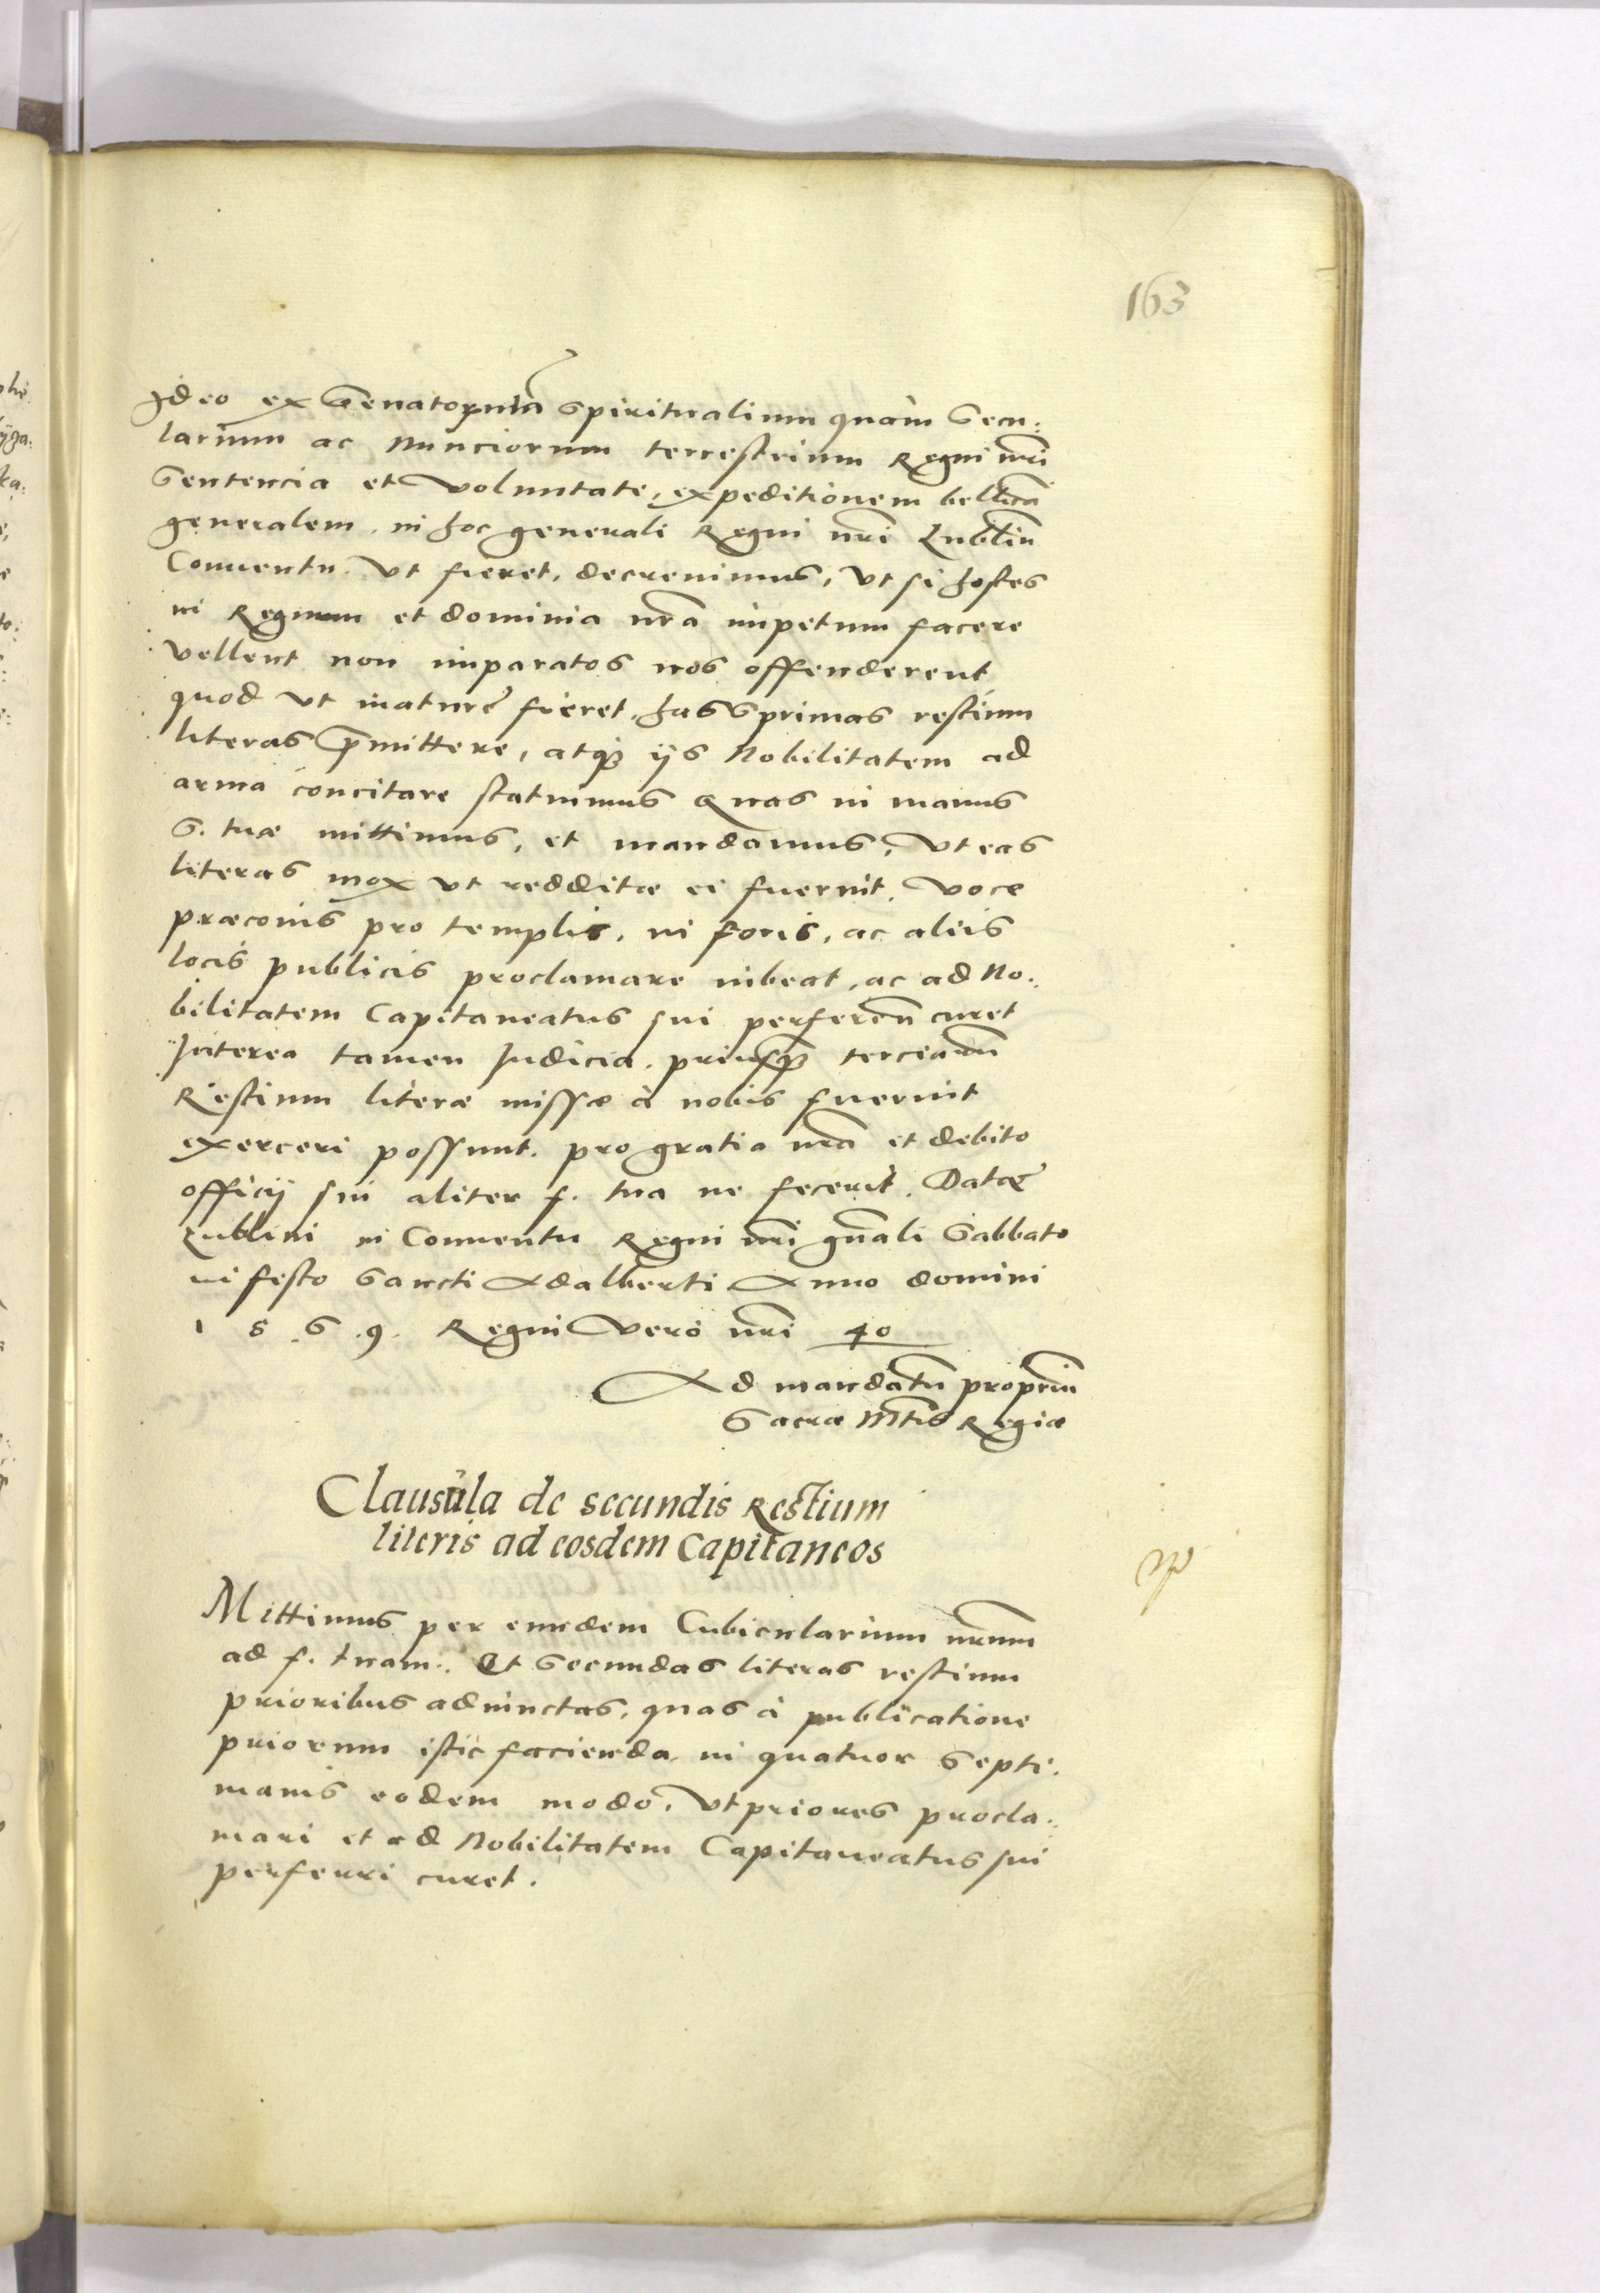 163
Ideo ex Senatorum tã Spiritualium quàm Secu:
larium ac Nunciorum terrestrium Regni nr̃i
Sentencia et voluntate, expeditionem bellicã
generalem, in hoc generali Regni nr̃i Lublin̄
Conuentu ut fieret, decreuimus, ut si hostes
in Regnum et dominia nr̃a impetum facere
vellent non imparatos nos offenderent
quod ut maturè fieret, has primas restium
literas p̃mittere, atq3 ijs Nobilitatem ad
arma concitare statuimus Quas in manus
S. tuæ mittimus, et mandamus, ut eas
literas mox ut redditæ ei fuerint, voce
præconis pro templis, in foris, ac aliis
locis publicis proclamare iubeat, ac ad No:
bilitatem Capitaneatus sui perferen̄ curet
Interea tamen Iudicia, priusq̃3 terciarũ
Restium literæ missæ à nobis fuerint
exerceri possunt. pro gratia nr̃a et debito
officij sui aliter s. tua ne fecerit. Datæ
Lublini in Conuentu Regni nr̃i gñali Sabbato
in festo Sancti Adalberti Anno domini
1 5 . 6 . 9 . Regni vero nr̃i 40
Ad mandatũ propriũ
Sacræ Mt̃is Regiæ
Clausula de secundis Restium
literis ad eosdem Capitaneos
Mittimus per eundem Cubicularium nr̃um
ad s. tuam. Et Secundas literas restium
prioribus adiunctas, quas à publicatione
priorum istic facienda in quatuor Septi:
manis eodem modo, ut priores procla:
mari et ad Nobilitatem Capitaneatus sui
perferri curet.